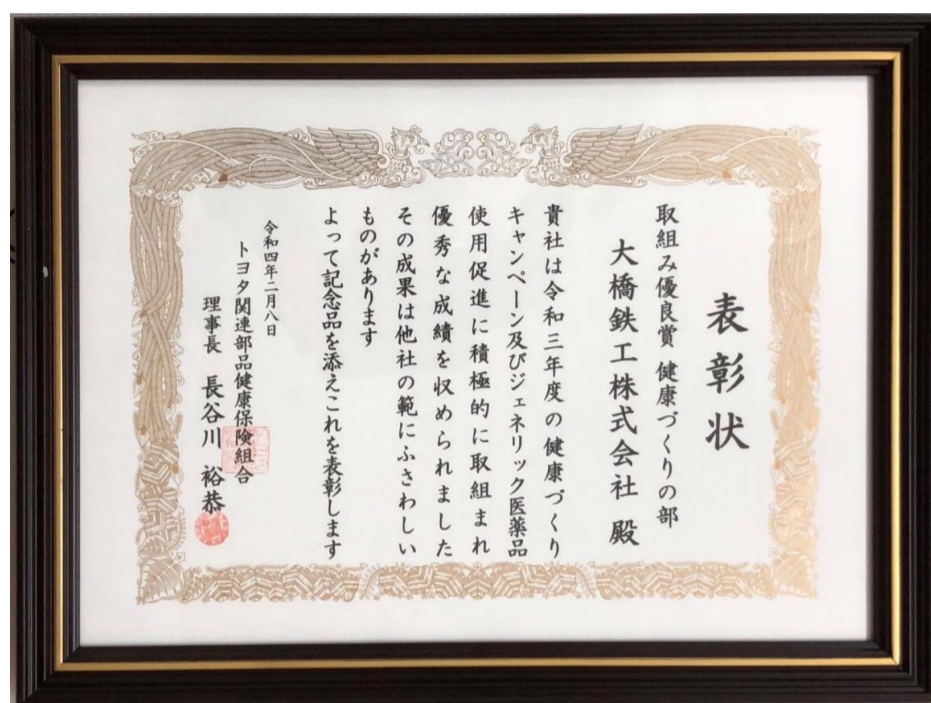 表彰状
取組み優良賞 健康づくりの部
大橋鉄工株式会社 殿
貴社は令和三年度の健康づくり
キャンペーン及びジェネリック医薬品
使用促進に積極的に取組まれ
優秀な成績を収められました
その成果は他社の範にふさわしい
ものがあります
よって記念品を添えこれを表彰します
令和四年二月八日
トヨタ関連部品健康保険組合
理事長 長谷川 裕恭